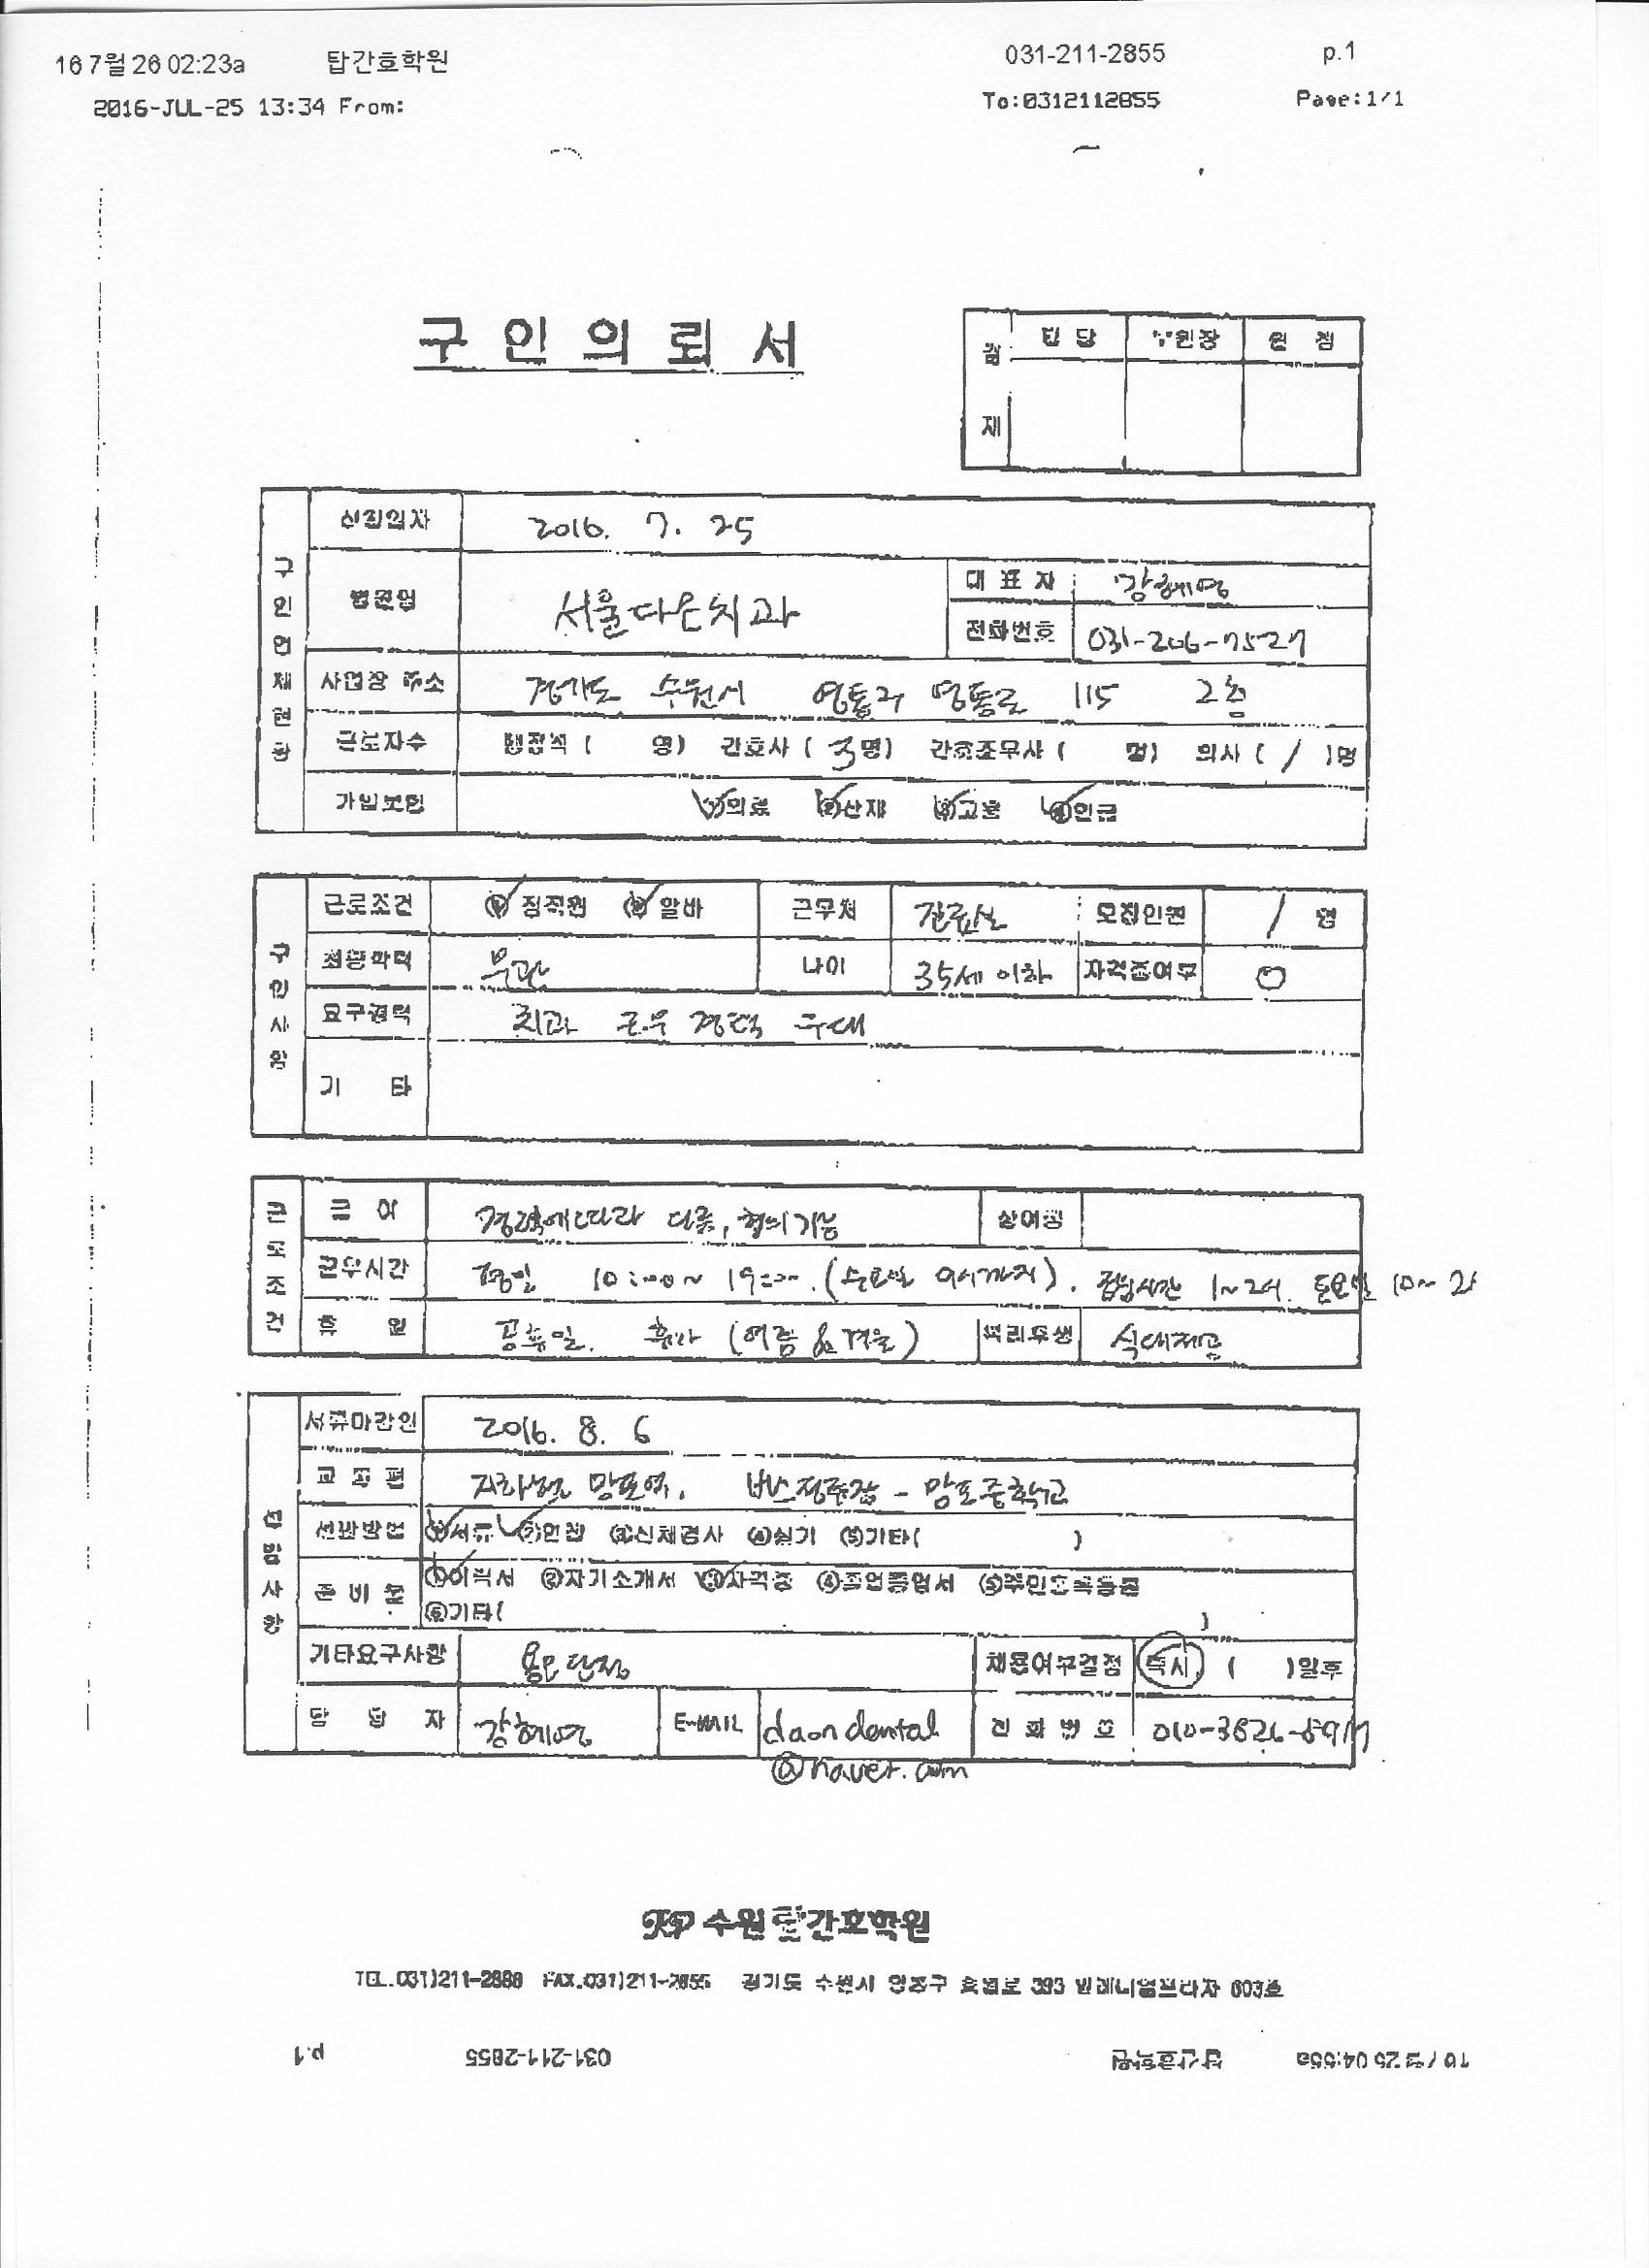 16 7월 26 02:23a 탑간호학원 031-211-2855 p.1
2016-JUL-25 13:34 From: To:0312112855 Page:1/1
구인의뢰서
결재 담당 부원장 원장
구인업체현황
신청일자 2016. 7. 25
병원명 서울다온치과
대표자 강혜영
전화번호 031-206-7527
사업장 주소 경기도 수원시 영통구 영통로 115 2층
근로자수 행정직 ( 명) 간호사 ( 3명) 간호조무사 ( 명) 의사 ( / )명
가입보험 ①의료 ②산재 ③고용 ④연금
구인사항
근로조건 ① 정직원 ② 알바 근무처 진료실 모집인원 / 명
최종학력 무관 나이 35세 이하 자격증여부 O
요구경력 치과 근무 경력 우대
기 타
근로조건
급 여 경력에 따라 다름, 협의가능 상여금
근무시간 평일 10:00~ 19:00. (수요일 9시까지). 점심시간 1~2시. 토요일 10~ 2시
휴 일 공휴일. 휴가 (여름 & 겨울) 복리후생 식대제공
서류마감일 2016. 8. 6
교통편 지하철 망포역. 버스정류장 - 망포중학교
선발방법 ①서류 ②면접 ③신체검사 ④실기 ⑤기타( )
준비물 ①이력서 ②자기소개서 ③자격증 ④졸업증명서 ⑤주민등록등본
⑥기타( )
기타요구사항 용모단정 채용여부결정 즉시 ( )일후
담당자 강혜영 E-MAIL daondental
@naver.com
전화번호
수원탑간호학원
TEL.031)211-2888 FAX.031)211-2855 경기도 수원시 영통구 393 밀레니엄프라자 603호
p.1 031-211-2855 탑간호학원